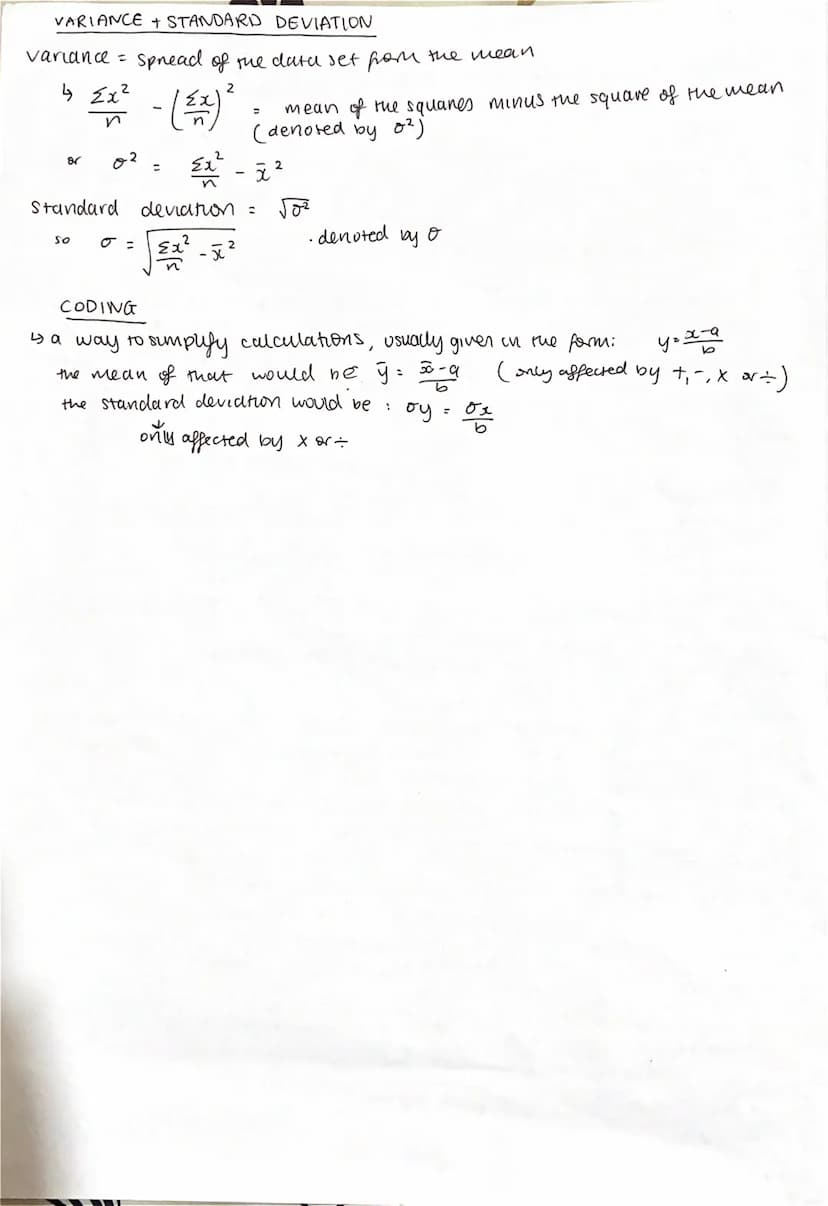 VARIANCE + STANDARD DEVIATION
Variance = spread of the data set from the mean
↳ Σx²/n - (Σx/n)² = mean of the squares minus the square of the mean
(denoted by σ²)
or σ² = Σx²/n - x̄²
Standard deviation = √σ²
so σ = √(Σx²/n - x̄²) . denoted by σ
CODING
↳ a way to simplify calculations, usually given in the form: y = x-a/b
the mean of that would be ȳ = x̄-a/b (only affected by +, -, x or ÷)
the standard deviation would be : σy = σx/b
only affected by x or ÷